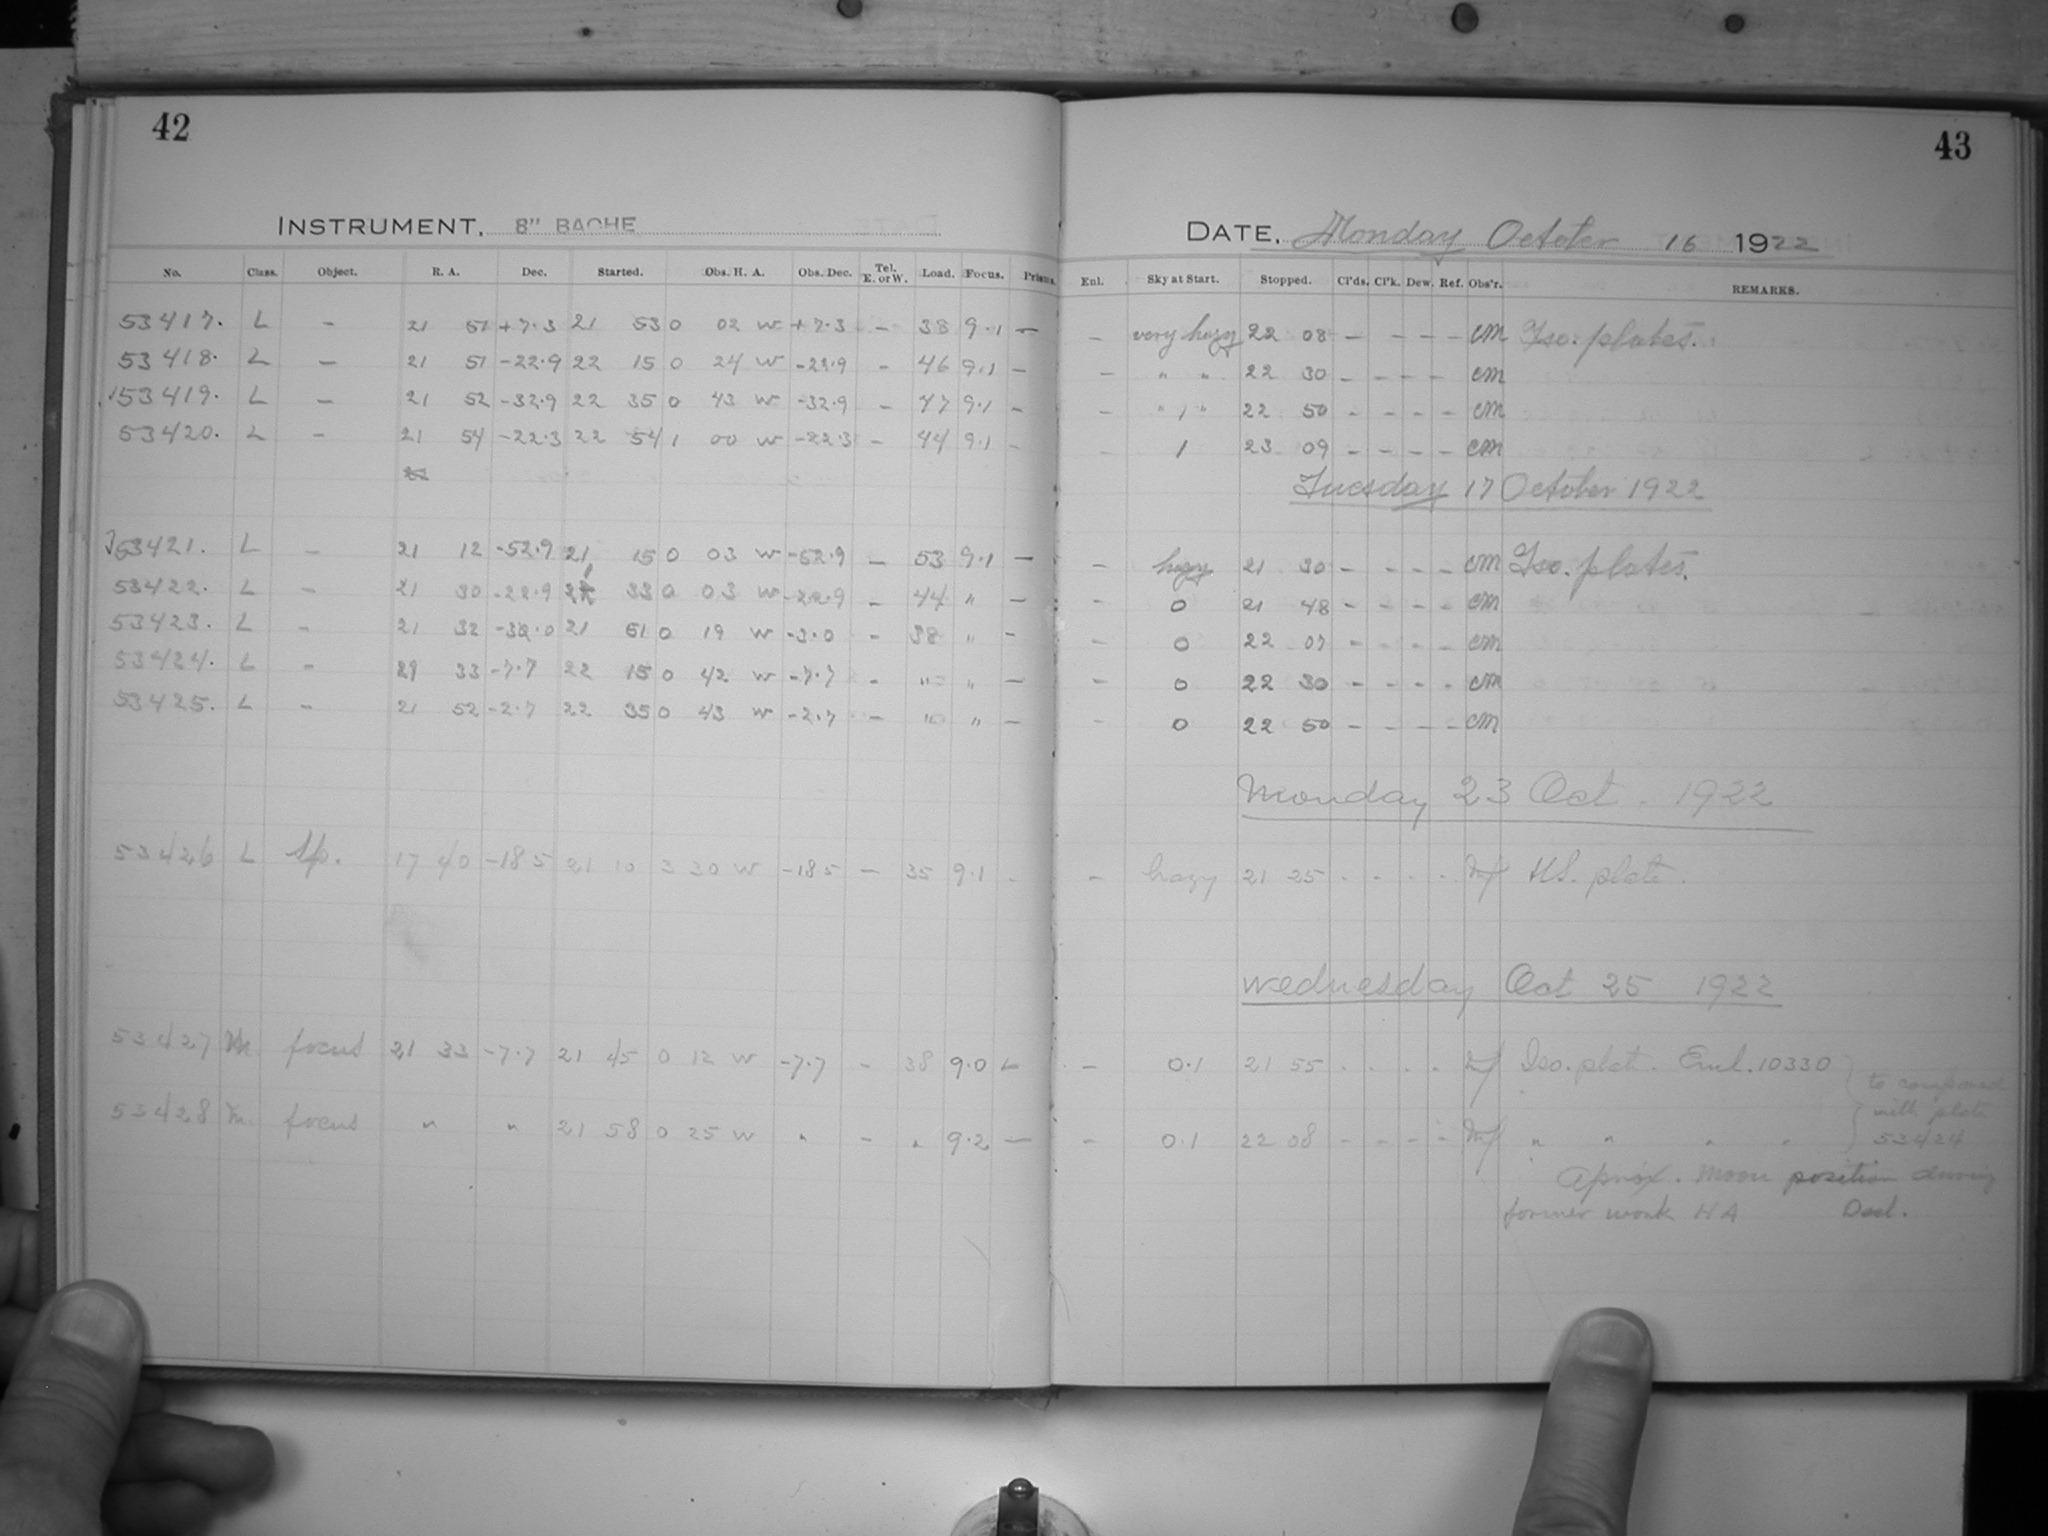 42
INSTRUMENT. 8" BACHE
No. Class. Object. R. A. Dec. Started. Obs. H. A. Obs. Dec. Tel. E. or W. Load. Focus. Prisms.
53417. L - 21 51 +7.3 21 53 0 02 W +7.3 - 38 9.1 -
53418. L - 21 51 -22.9 22 15 0 24 W -22.9 - 46 9.1 -
53419. L - 21 52 -32.9 22 35 0 43 W -32.9 - 47 9.1 -
53420. L - 21 54 -22.3 22 54 1 00 W -22.3 - 44 9.1 -
53421. L - 21 12 -52.9 21 15 0 03 W -52.9 - 53 9.1 -
53422. L - 21 30 -22.9 21 33 0 03 W -22.9 - 44 " -
53423. L - 21 32 21 51 0 19 W -3.0 - 38 " -
53424. L - 21 33 -7.7 22 15 0 42 W -7.7 - " " -
53425. L - 21 52 -2.7 22 35 0 43 W -2.7 - " " -
53426 L Sp. 17 40 -18.5 21 10 3 30 W -18.5 - 35 9.1 -
53427 M. focus 21 33 -7.7 21 45 0 12 W -7.7 - 38 9.0 -
53428 M. focus " " 21 58 0 25 W " - " 9.2 -
43
DATE. Monday October 16 1922
Enl. Sky at Start. Stopped. Cl'ds. Cl'k. Dew. Ref. Obs'r. REMARKS.
- very hazy 22 08 - - - - CM Iso. plates.
- " " 22 30 - - - - CM
- " " 22 50 - - - - CM
- 1 23 09 - - - - CM
Tuesday 17 October 1922
- hazy 21 30 - - - - CM Iso. plates.
- 0 21 48 - - - - CM
- 0 22 07 - - - - CM
- 0 22 30 - - - - CM
- 0 22 50 - - - - CM
Monday 23 Oct. 1922
- hazy 21 25 - - - - plate.
Wednesday Oct 25 1922
- 0.1 21 55 - - - - Iso. plate. Emul. 10330
to compared
with plate
53424
- 0.1 22 08 - - - - " " " "
Aprox. Moon position during
former work HA Decl.